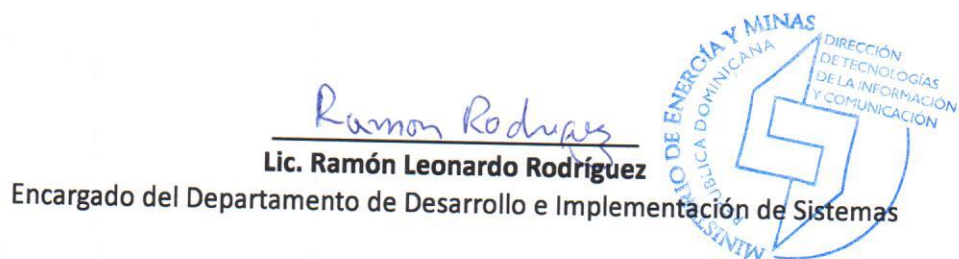 Ramon Rodriguez
Lic. Ramón Leonardo Rodríguez
Encargado del Departamento de Desarrollo e Implementación de Sistemas
MINISTERIO DE ENERGÍA Y MINAS
REPÚBLICA DOMINICANA
DIRECCIÓN
DE TECNOLOGÍAS
DE LA INFORMACIÓN
Y COMUNICACIÓN